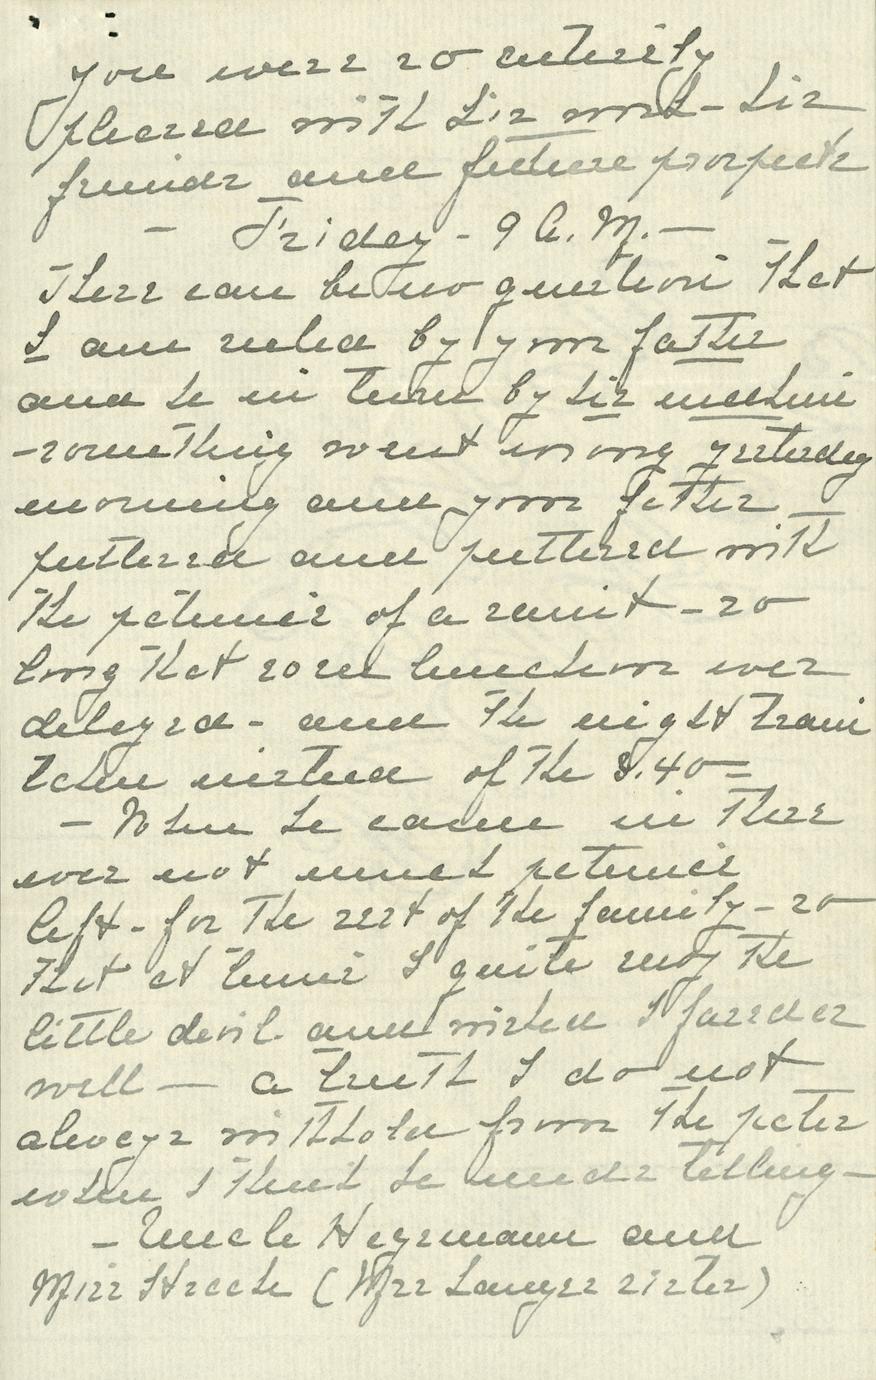 you were so entirely
pleased with his work - his
friends and future prospects
- Friday - 9 A.M. -
There can be no question that
I am ruled by your father
and he in turn by his machine
- something went wrong yesterday
morning and your father
puttered and puttered with
the patience of a saint - so
long that said luncheon was
delayed - and the night train
taken instead of the 8.40 =
- When he came in there
was not much patience
left - for the rest of the family - so
that at times I quite envy the
little devil and wished I fared as
well - a truth I do not
always withhold from the pater
when I think he needs telling -
- Uncle Heyrmann and
Miss (Mrs sister)